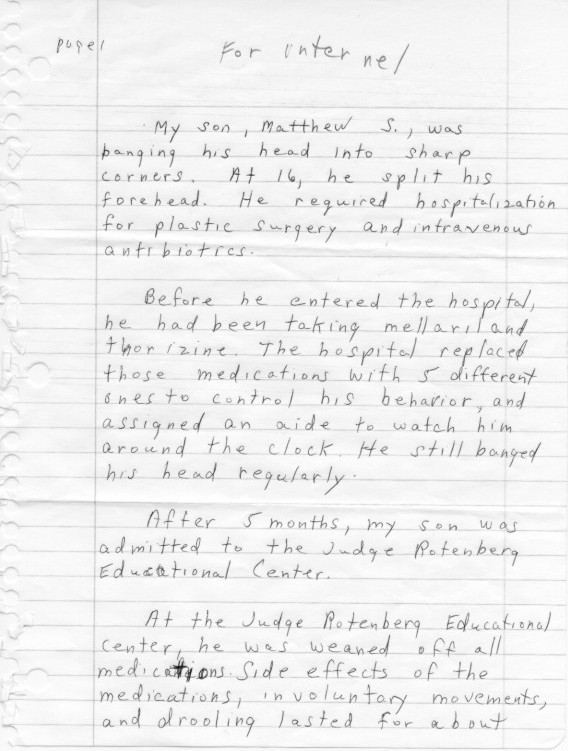 page 1
For internet
My son, Matthew S., was
banging his head into sharp
corners. At 16, he split his
forehead. He required hospitalization
for plastic surgery and intravenous
antibiotics.
Before he entered the hospital,
he had been taking mellaril and
thorizine. The hospital replaced
those medications with 5 different
ones to control his behavior, and
assigned an aide to watch him
around the clock. He still banged
his head regularly.
After 5 months, my son was
admitted to the Judge Rotenberg
Educational Center.
At the Judge Rotenberg Educational
Center, he was weaned off all
medications. Side effects of the
medications, involuntary movements,
and drooling lasted for about